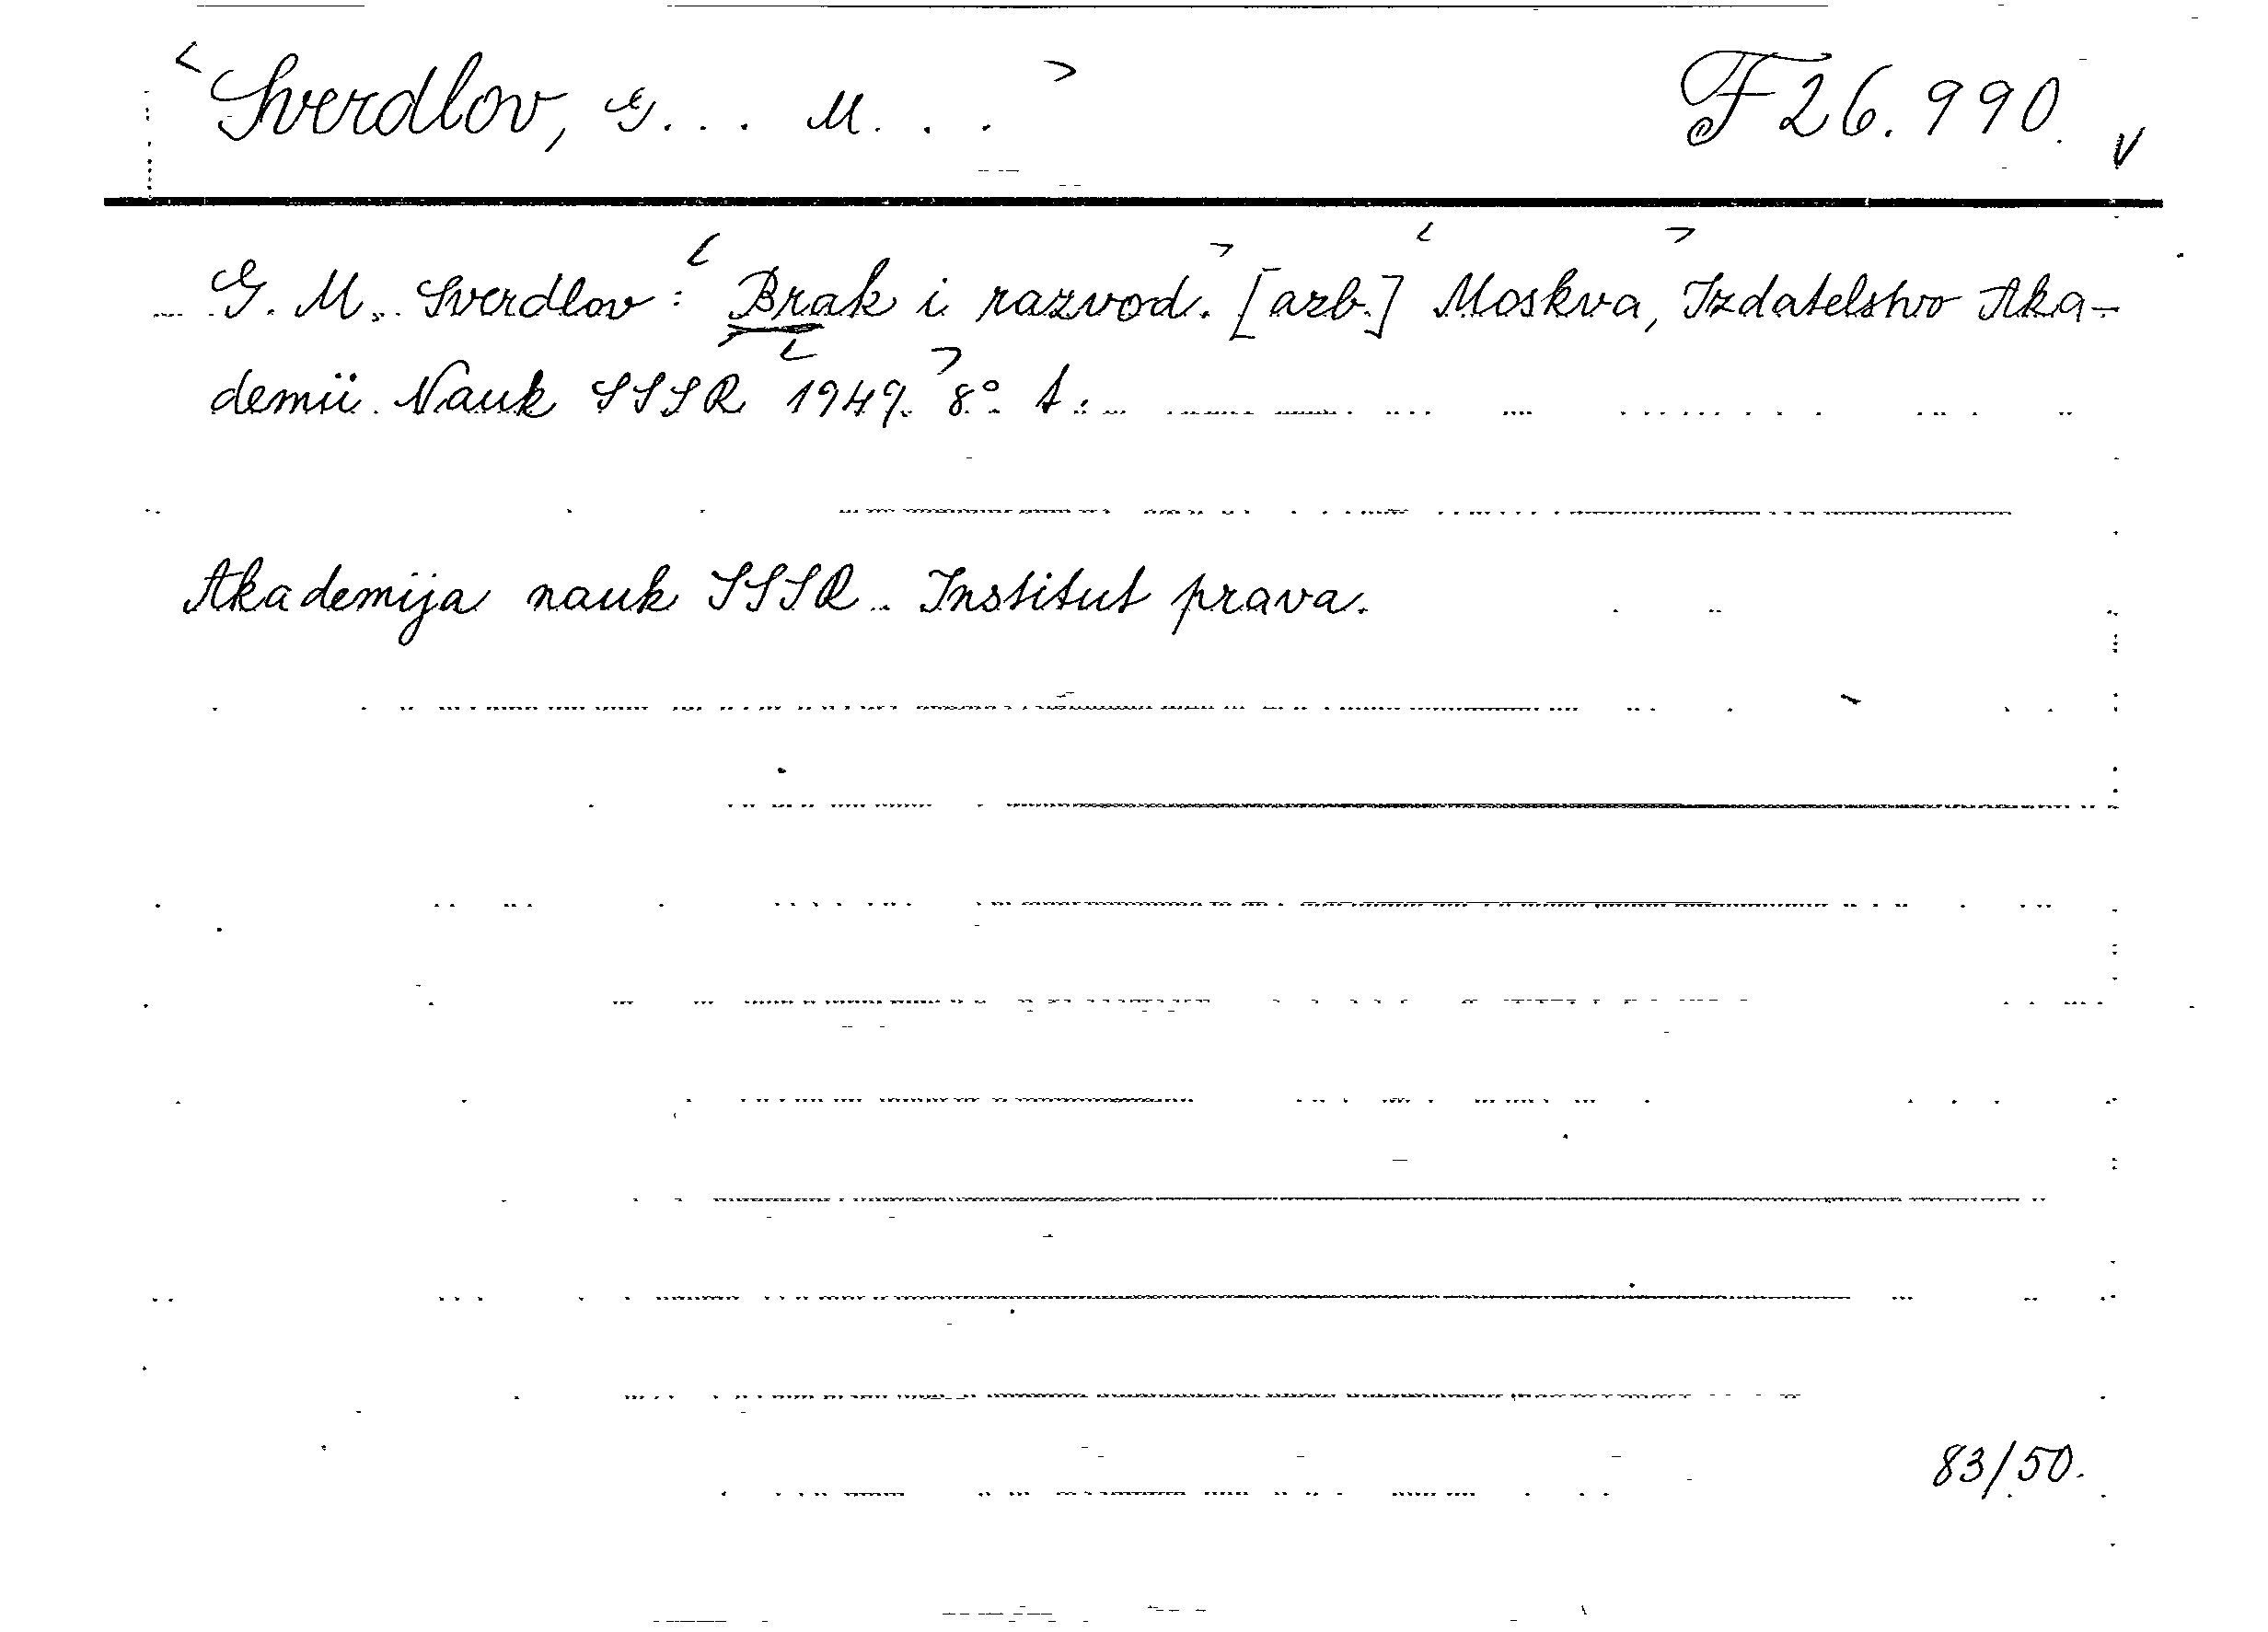 <Sverdlov, G... M...> F 26.990. V
G. M. Sverdlov: <Brak i razvod.> [azb.] <Moskva,> Izdatelstvo Aka-
demii Nauk SSSR <1949.> 8° t.
Akademija nauk SSSR. Institut prava.
83/50.